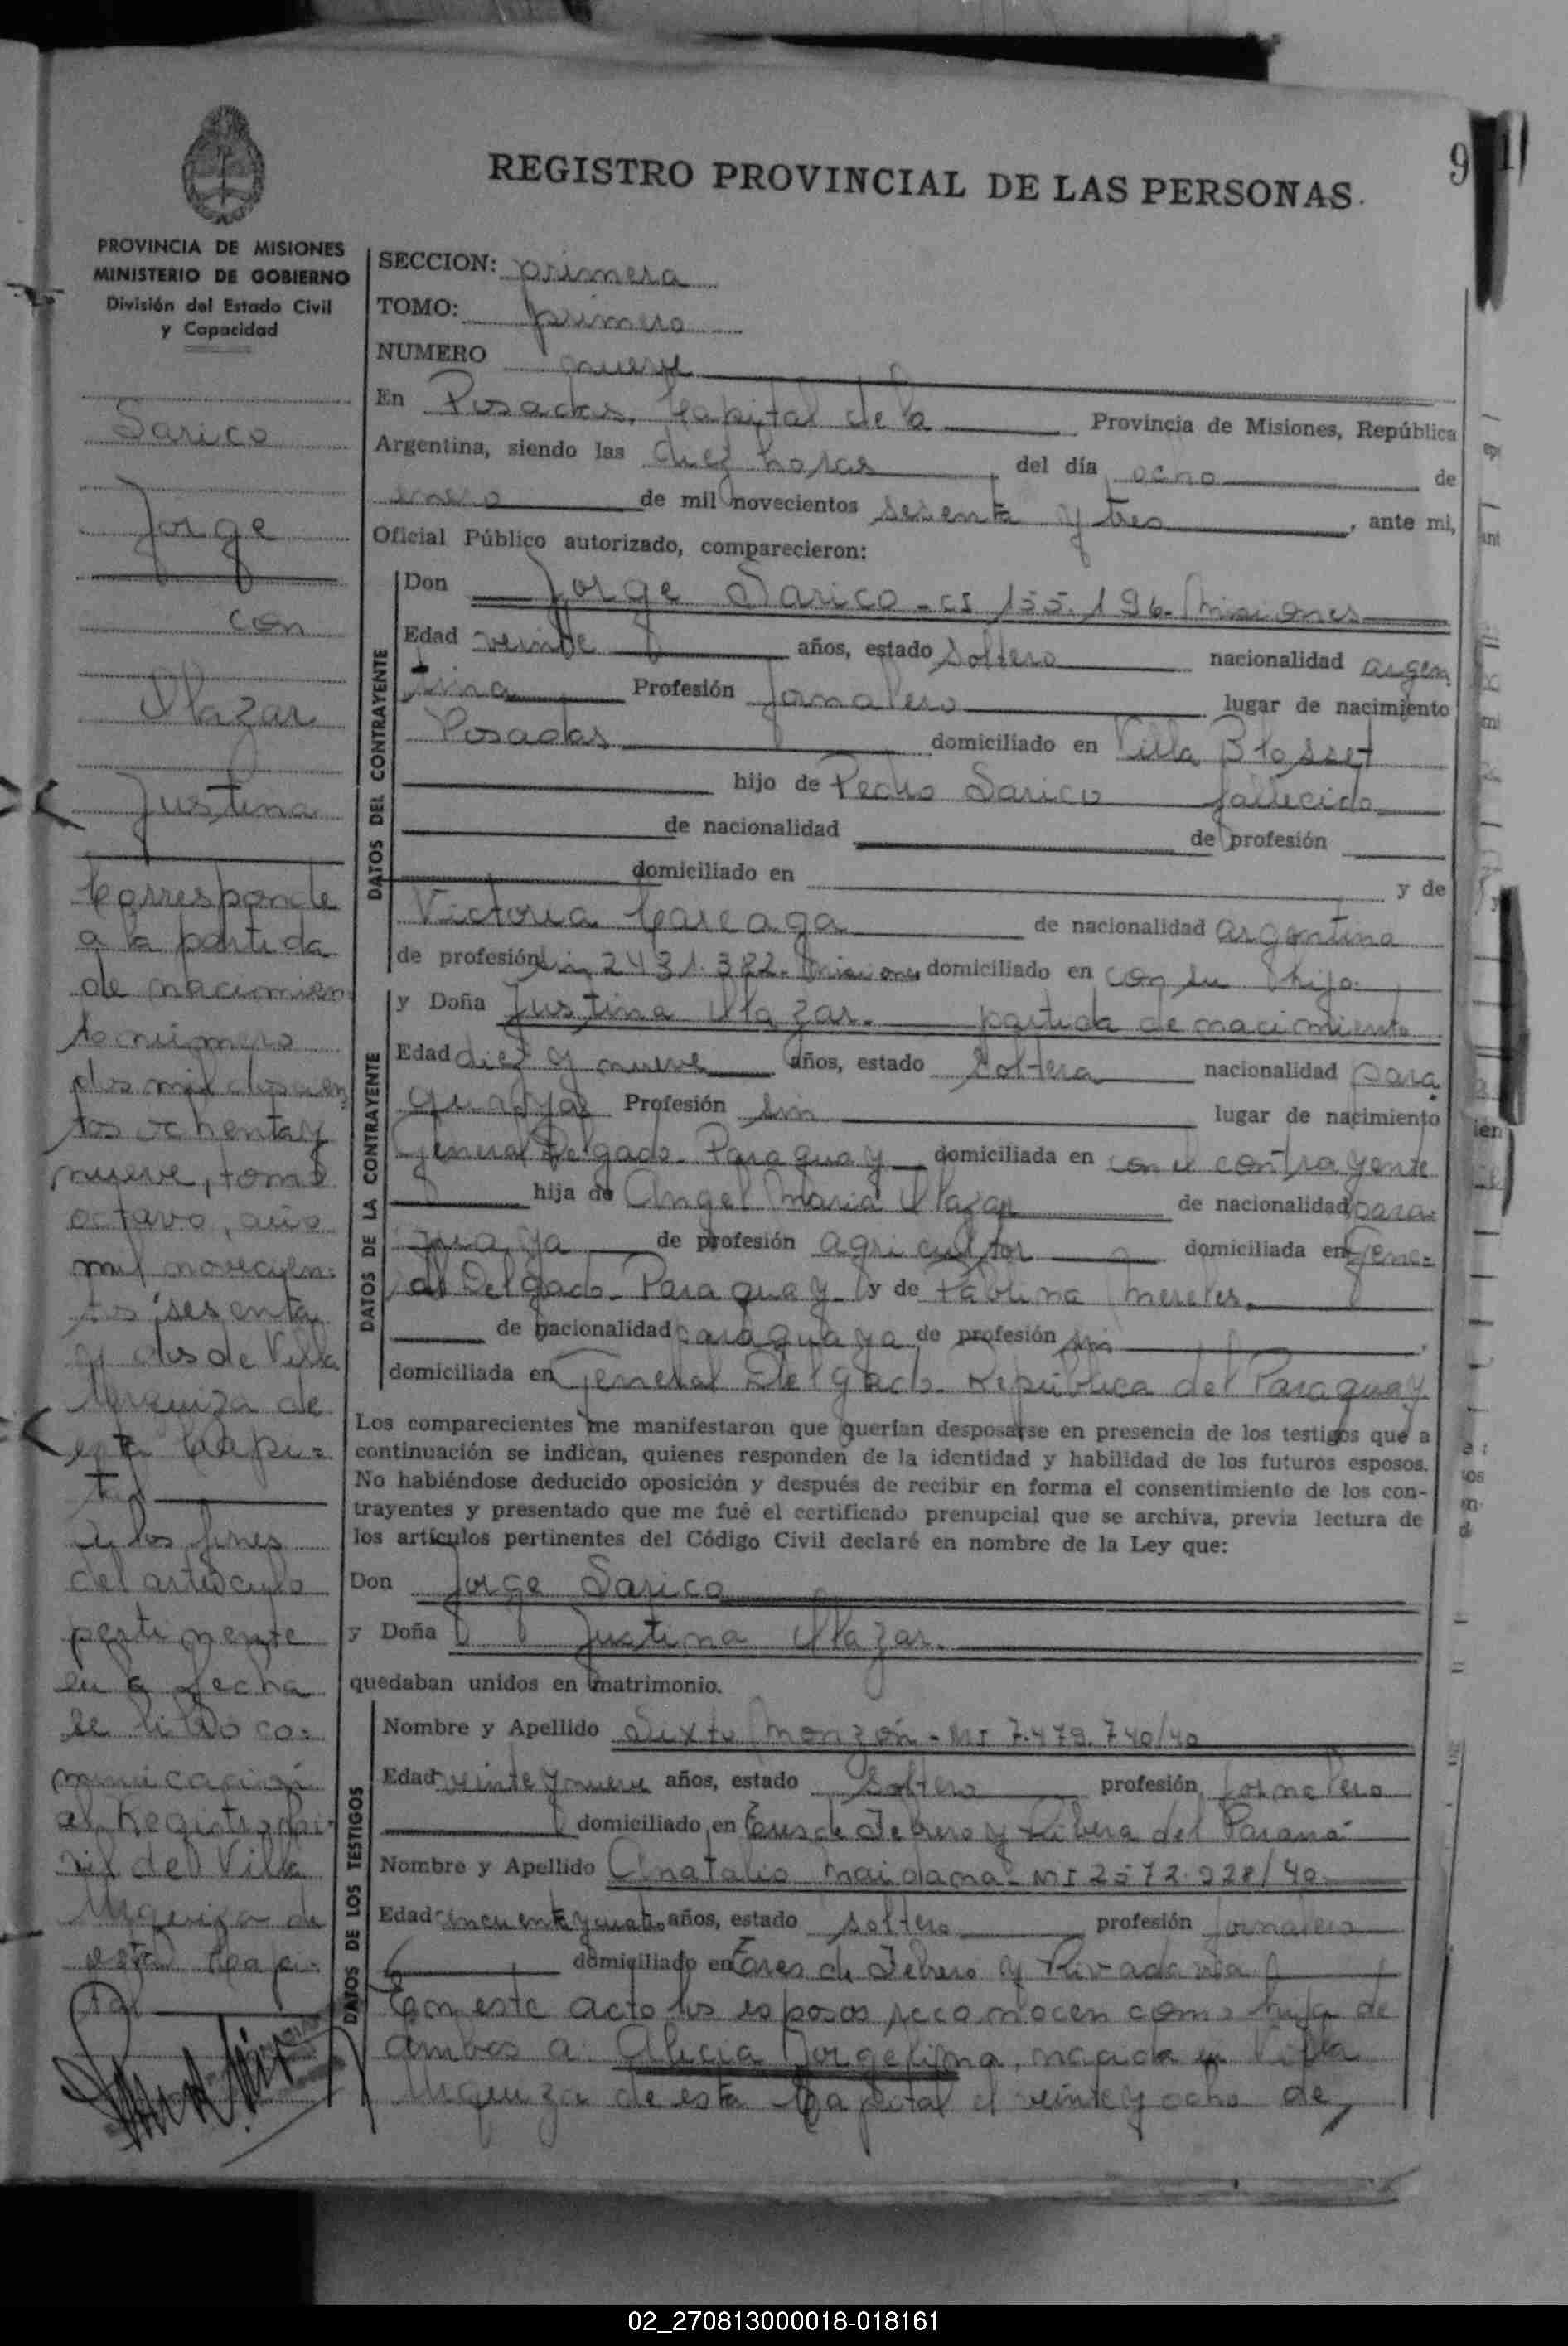 REGISTRO PROVINCIAL DE LAS PERSONAS.
9
PROVINCIA DE MISIONES
MINISTERIO DE GOBIERNO
División del Estado Civil
y Capacidad
Sarico
Jorge
con
Justina
Corresponde
a la partida
de nacimien
to número
dos mil doscien
tos ochenta y
nueve, tomo
octavo, año
mil novecien=
tos sesenta
y dos de Villa
Urquiza de
esta Capi=
tal
A los fines
del artículo
pertinente
en la fecha
se libró co=
municación
al Registro Ci-
vil del Villa
Urquiza de
esta Capi-
tal
SECCION: primera
TOMO: primero
NUMERO nueve
En Posadas, Capital de la Provincia de Misiones, República
Argentina, siendo las diez horas del día ocho de
enero de mil novecientos sesenta y tres, ante mi,
Oficial Público autorizado, comparecieron:
DATOS DEL CONTRAYENTE
Don Jorge Sarico - CI 155.196. Misiones
Edad veinte años, estado soltero nacionalidad argen
tina Profesión Jornalero lugar de nacimiento
Posadas domiciliado en Villa Blosset
hijo de Pedro Sarico fallecido
de nacionalidad de profesión
domiciliado en y de
Victoria Careaga de nacionalidad argentina
de profesión 2431.382. Misiones domiciliado en con su hijo.
DATOS DE LA CONTRAYENTE
y Doña Justina partida de nacimiento
Edad diez y nueve años, estado soltera nacionalidad para
guaya Profesión sin lugar de nacimiento
General Delgado - Paraguay domiciliada en con el contrayente
hija de Angel Maria de nacionalidad para-
guaya de profesión agricultor domiciliada en Gene=
ral Delgado - Paraguay y de Pablina Mereles.
de nacionalidad paraguaya de profesión sin
domiciliada en General Delgado - República del Paraguay.
Los comparecientes me manifestaron que querían desposarse en presencia de los testigos que a
continuación se indican, quienes responden de la identidad y habilidad de los futuros esposos.
No habiéndose deducido oposición y después de recibir en forma el consentimiento de los con-
trayentes y presentado que me fué el certificado prenupcial que se archiva, previa lectura de
los artículos pertinentes del Código Civil declaré en nombre de la Ley que:
Don Jorge Sarico
y Doña Justina
quedaban unidos en matrimonio.
DATOS DE LOS TESTIGOS
Nombre y Apellido Sixto Monzón - MI 7.479.740/40
Edad veinte y nueve años, estado soltero profesión jornalero
domiciliado en Tres de Febrero y Ribera del Paraná
Nombre y Apellido Anatalio Maidana - MI 2572.928/40
Edad cincuenta y cuatro años, estado soltero profesión jornalero
domiciliado en Tres de Febrero y Rivadavia
En este acto los esposos reconocen como hija de
ambos a Alicia Jorgelina, nacida en Villa
Urquiza de esta Capital el veinte y ocho de
02_270813000018-018161